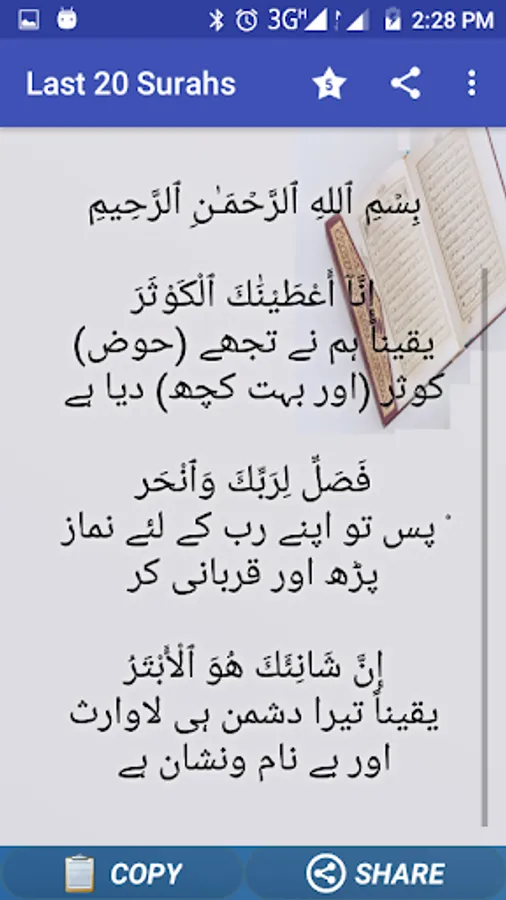 3G H 2:28 PM
Last 20 Surahs 5
بِسْمِ ٱللهِ ٱلرَّحْمَـٰنِ ٱلرَّحِيمِ
إِنَّآ أَعْطَيْنَـٰكَ ٱلْكَوْثَرَ
يقيناً ہم نے تجھے (حوض)
کوثر (اور بہت کچھ) دیا ہے
فَصَلِّ لِرَبِّكَ وَٱنْحَر
ْ پس تو اپنے رب کے لئے نماز
پڑھ اور قربانی کر
إِنَّ شَانِئَكَ هُوَ ٱلْأَبْتَرُ
يقيناً تیرا دشمن ہی لاوارث
اور بے نام ونشان ہے
COPY SHARE